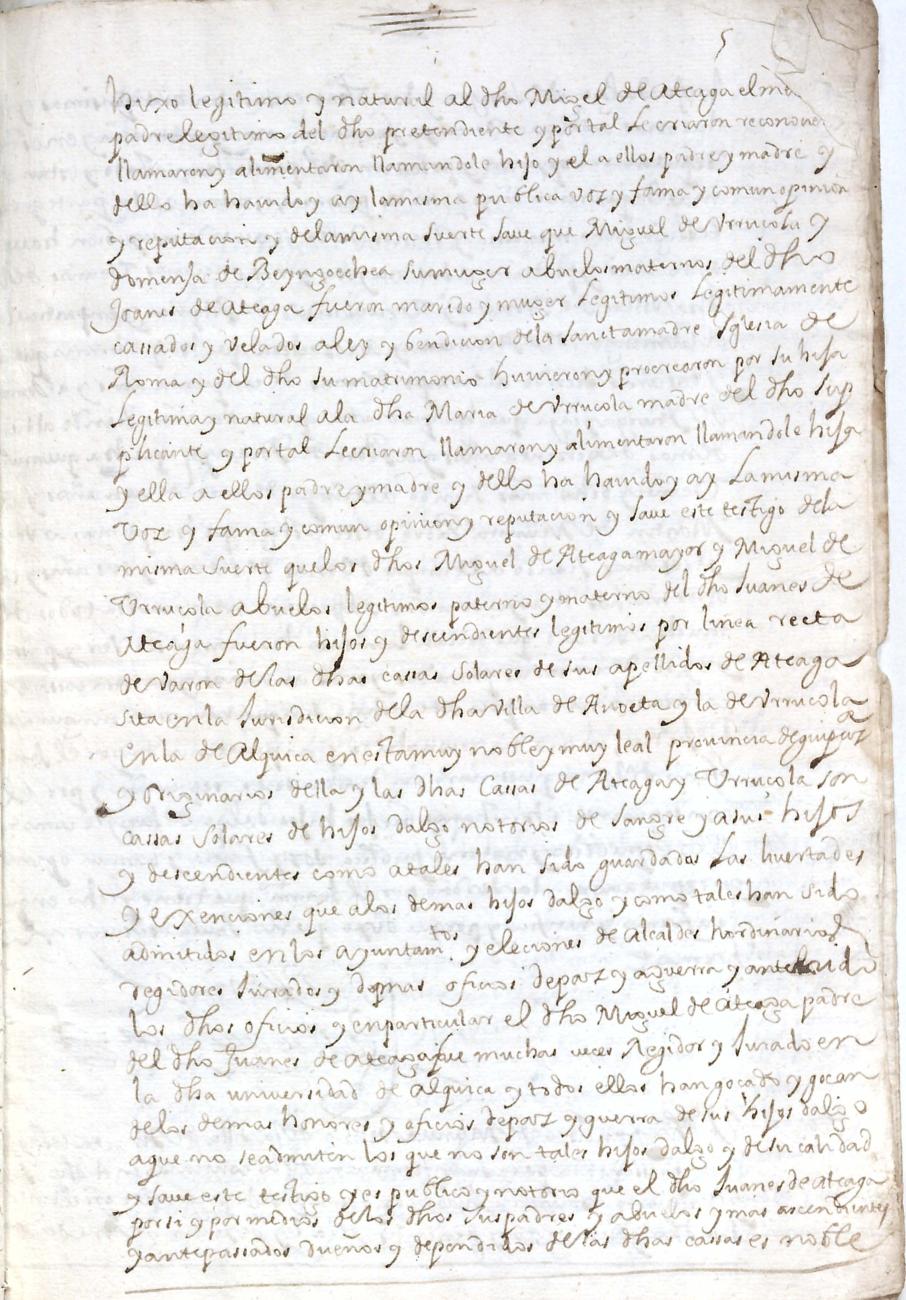 5
hixo legitimo y natural al dho Migel de Ateaga el
padre legitimo del dho pretendiente y por tal le criaron
llamaron y alimentaron llamandole hijo y el a ellos padre y madre y
dello ha havido y ay la misma publica voz y fama y comun opinion
y reputacion y de la misma suerte save que Miguel de Urrucola y
Domensa de Beyngoechea su muger abuelos maternos del dho
Joanes de Ateaga fueron marido y muger legitimos legitimamente
cassados y velados a ley y bendicion de la sancta madre Yglesia de
Roma y del dho su matrimonio huvieron y procrearon por su hija
legitima y natural a la dha Maria de Urrucola madre del dho sup
plicante y por tal le criaron llamaron y alimentaron llamandole hija
y ella a ellos padre y madre y dello ha havido y ay la misma
voz y fama y comun opinion y reputacion y save este testigo de la
misma suerte que los dhos Miguel de Ateaga mayor y Miguel de
Urrucola abuelos legitimos paterno y materno del dho Juanes de
Ateaga fueron hijos y descendientes legitimos por linea recta
de varon de las dhas cassas solares de sus apellidos de Ateaga
sita en la Jurisdicion de la dha villa de Anoeta y la de Urrucola
en la de Alquica en esta muy noble y muy leal provincia de guipuz
y originarios della y las dhas Cassas de Ateaga y Urrucola son
cassas solares de hijos dalgo notorios de sangre y a sus hijos
y descendientes como a tales han sido guardados las livertades
y exenciones que a los demas hijos dalgo y como tales han sido
admitidos en los ayuntamtos y eleciones de Alcaldes hordinarios
regidores Jurados y demas oficios de paz y a guerra y an
los dhos oficios y en particular el dho Miguel de Ateaga padre
del dho Juanes de ateaga fue muchas veces Regidor y Jurado en
la dha universidad de alquica y todos ellos han goçado y goçan
de los demas honores y oficios de paz y guerra de sus hijos dalgo
a que no se admiten los que no son tales hijos dalgo y de su calidad
y save este testigo y es publico y notorio que el dho Juanes de Ateaga
por si y por medios de los dhos sus padres y abuelos y mas ascendientes
y antepassados dueños y dependidos de las dhas cassas es noble